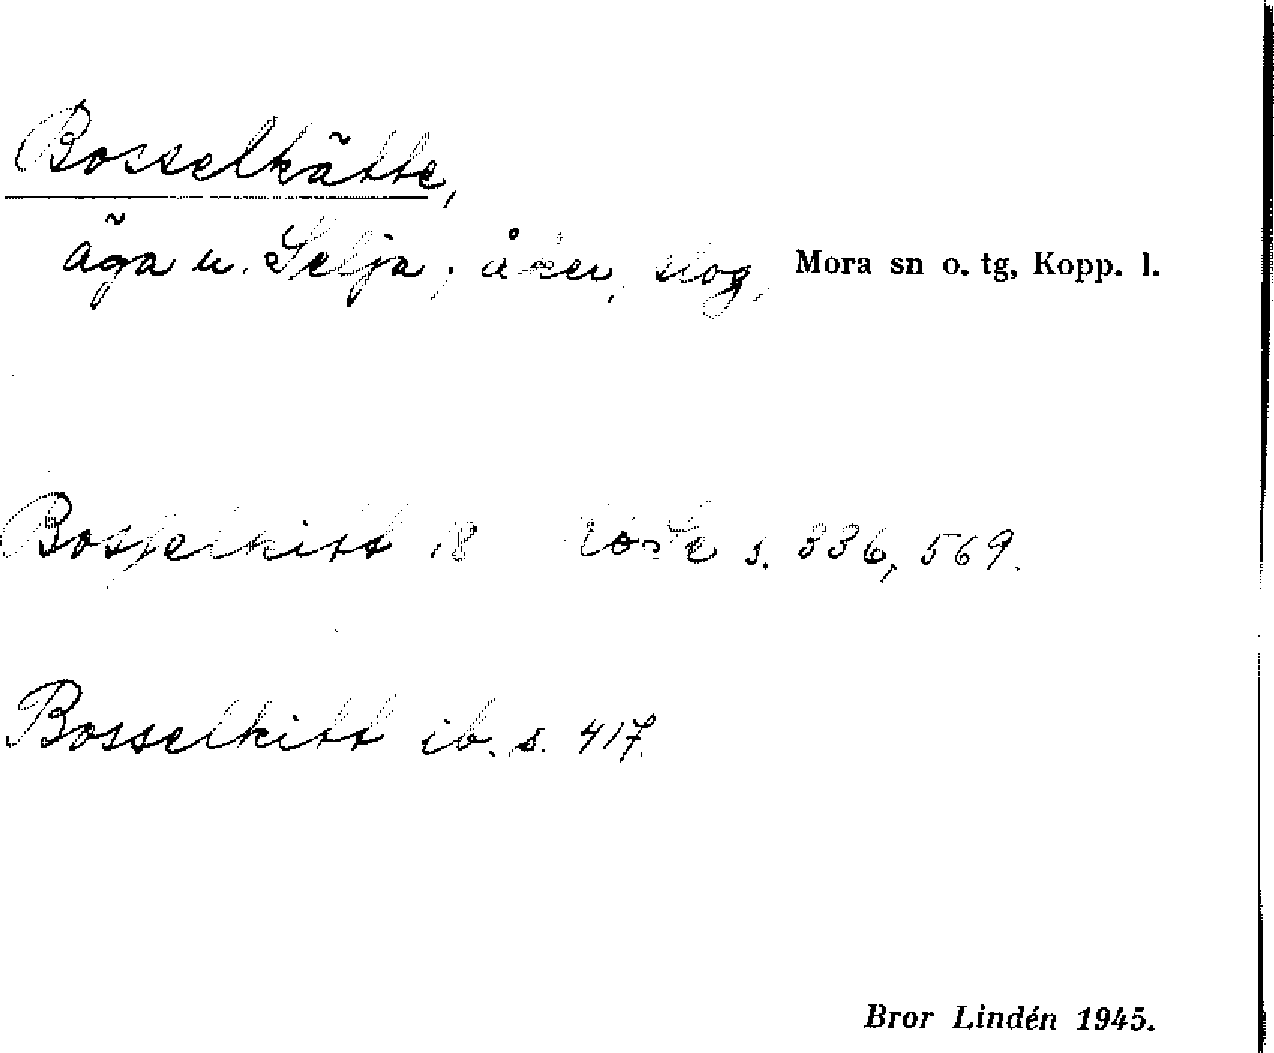 Bosselkätte,
äga u. Selja; åker, slog, Mora sn o. tg, Kopp. l.
Bosselkitt 18 s. 336, 569.
Bosselkitt ib. s. 417.
Bror Lindén 1945.